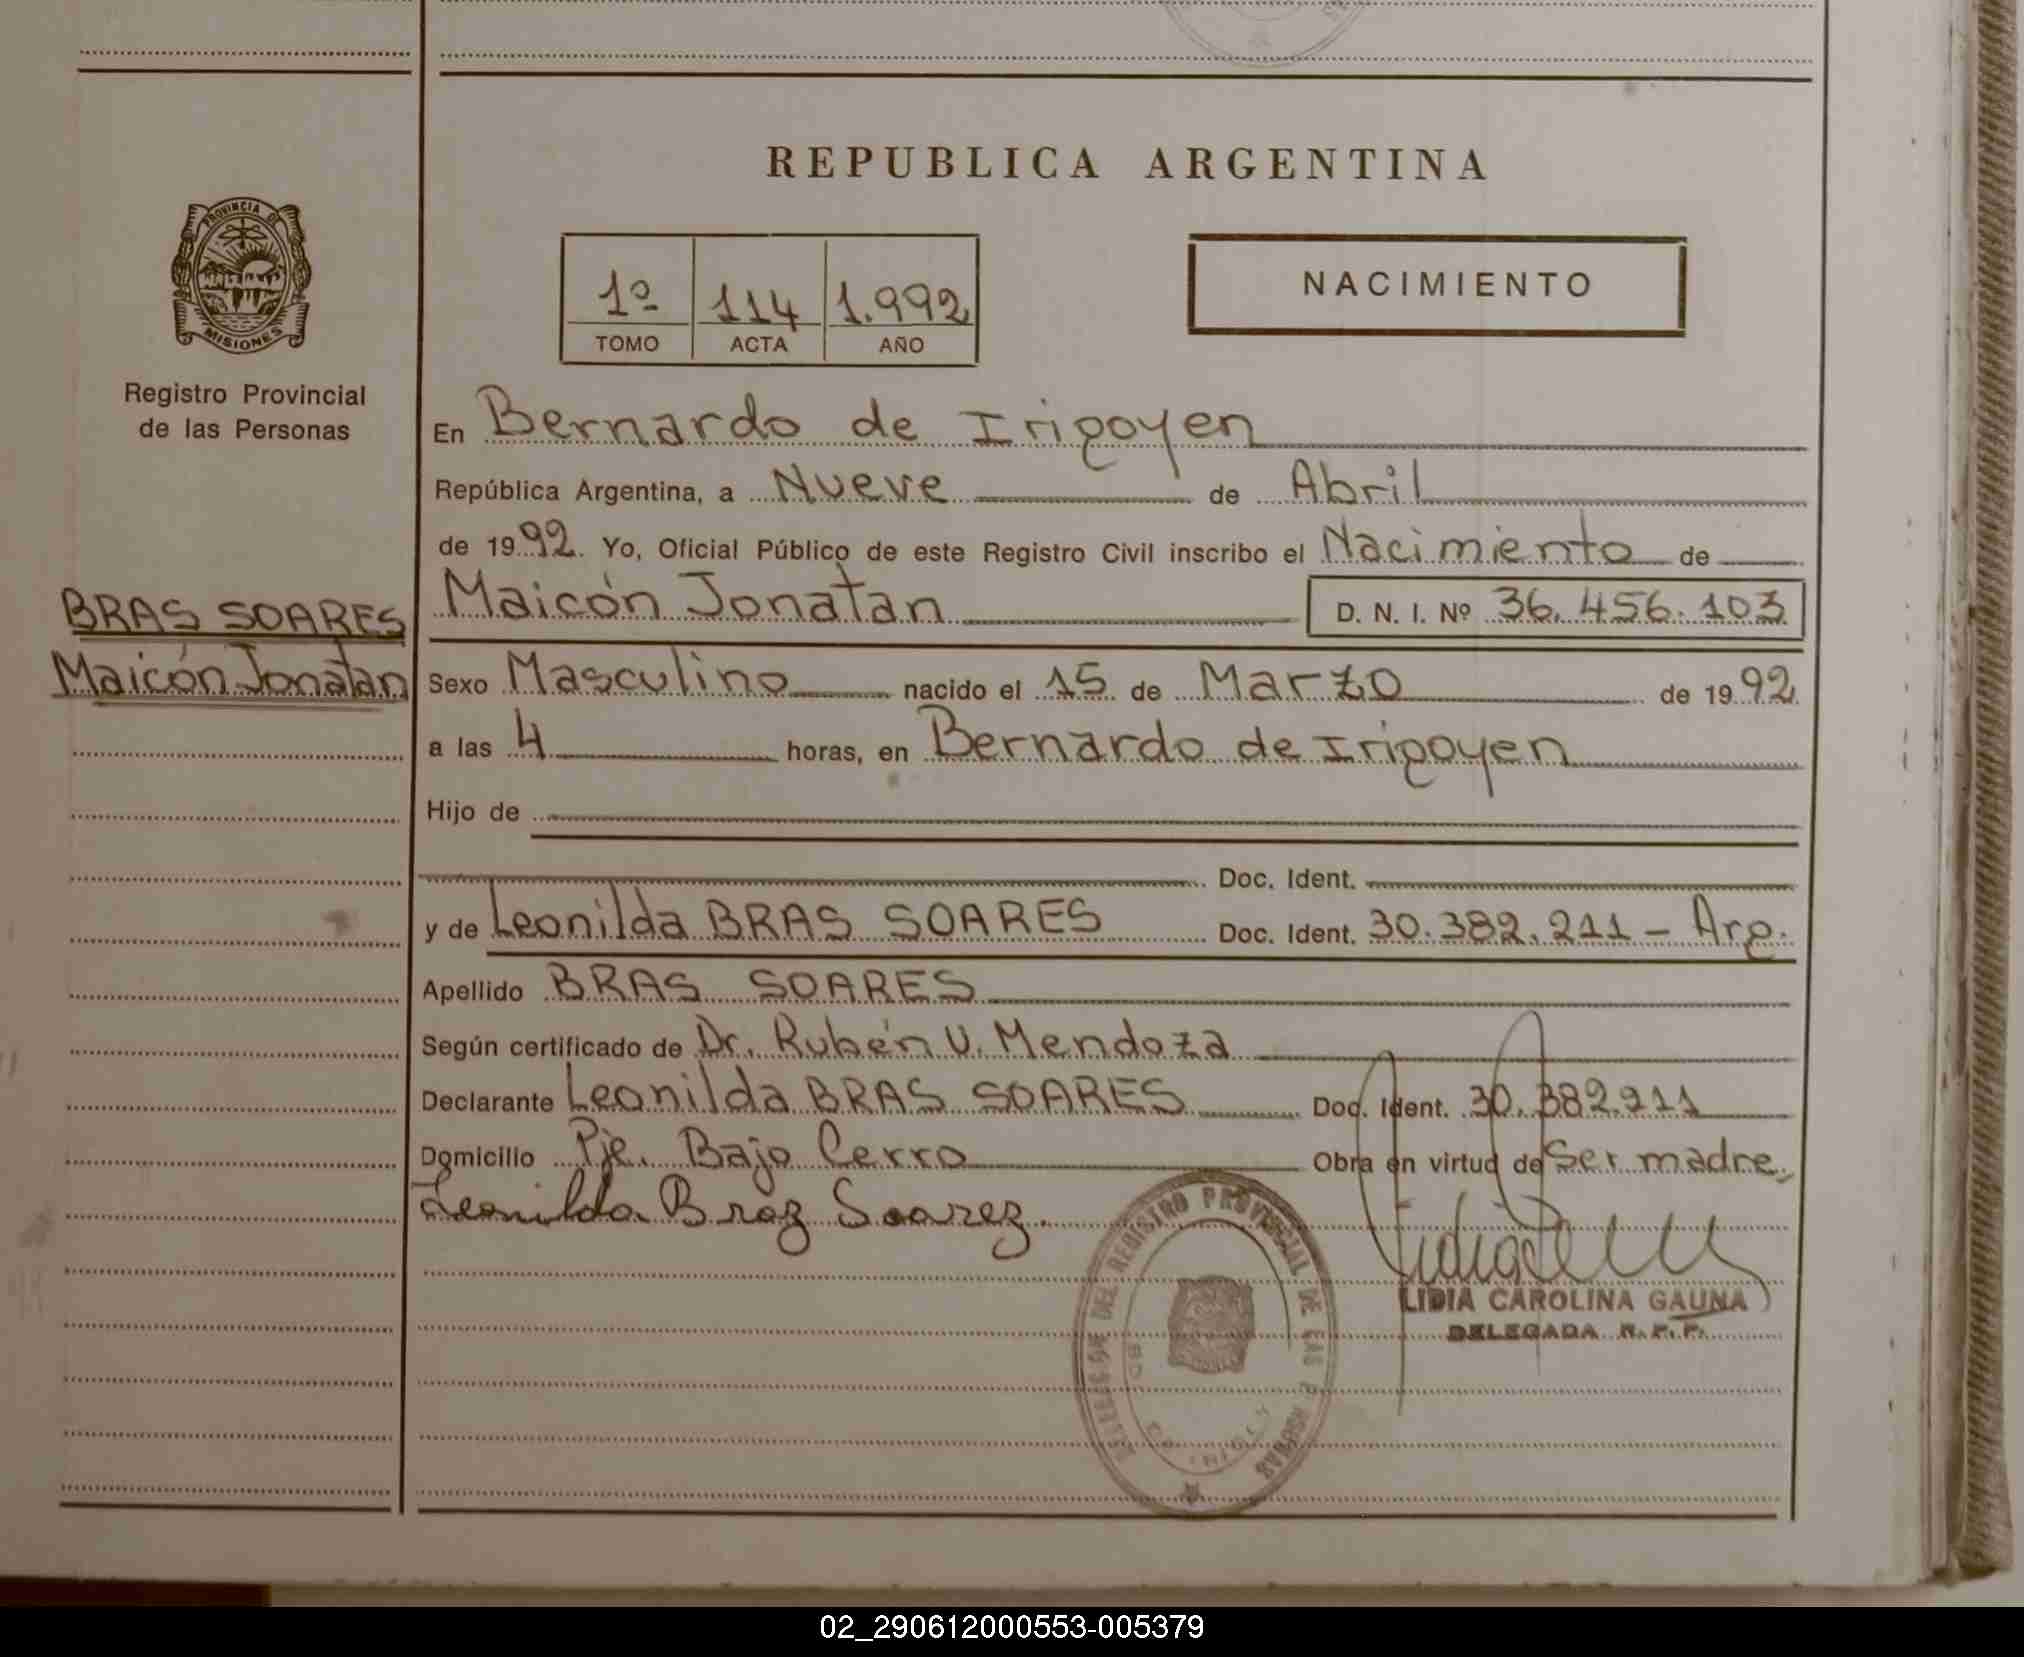 REPUBLICA ARGENTINA
PROVINCIA DE
MISIONES
Registro Provincial
de las Personas
1º 114 1.992
TOMO ACTA AÑO
NACIMIENTO
En Bernardo de Irigoyen
República Argentina, a Nueve de Abril
de 1992. Yo, Oficial Público de este Registro Civil inscribo el Nacimiento de
BRAS SOARES
Maicón Jonatan
Maicón Jonatan D. N. I. Nº 36.456.103
Sexo Masculino nacido el 15 de Marzo de 1992
a las 4 horas, en Bernardo de Irigoyen
Hijo de
Doc. Ident.
y de Leonilda BRAS SOARES Doc. Ident. 30.382.211 - Arg.
Apellido BRAS SOARES
Según certificado de Dr. Rubén U. Mendoza
Declarante Leonilda BRAS SOARES Doc. Ident. 30.382.211
Domicilio Pje. Bajo Cerro Obra en virtud de Ser madre.
Leonilda Braz Soarez.
DEL REGISTRO PROVINCIAL DE LAS
LIDIA CAROLINA GAUNA
DELEGADA R.P.P.
02_290612000553-005379